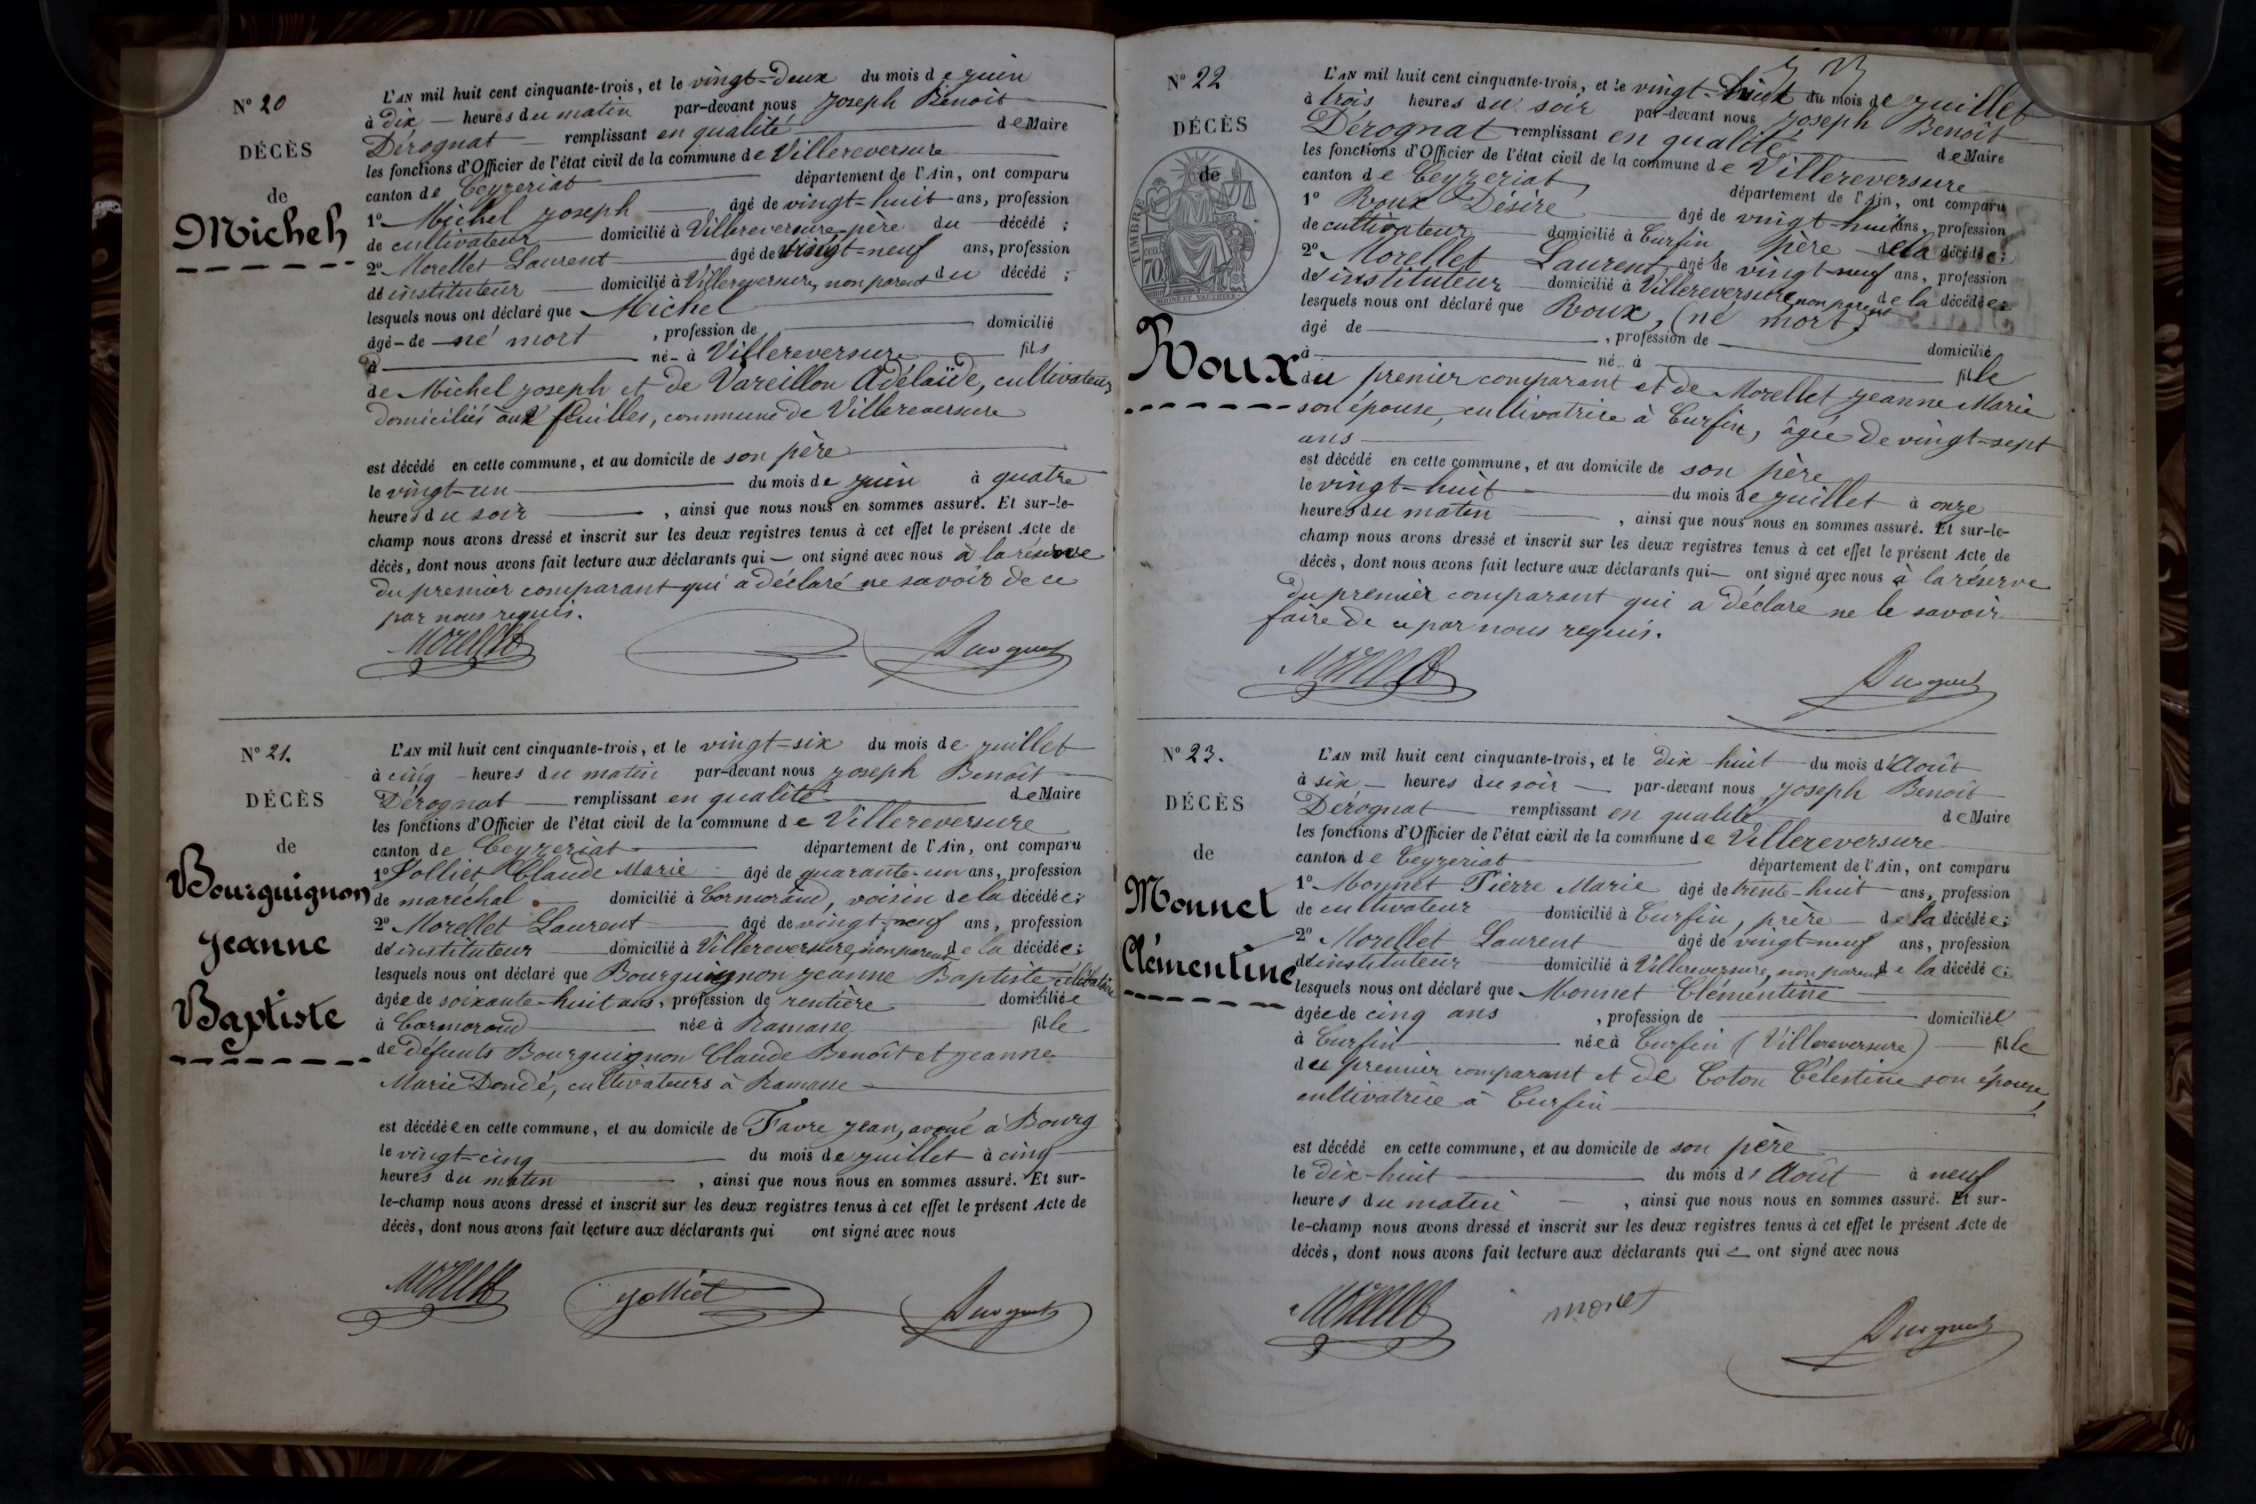 N° 20
DÉCÈS
de
Michel
L'AN mil huit cent cinquante-trois, et le vingt-deux du mois de juin
à dix heures du matin par-devant nous Joseph Benoit
Dérognat remplissant en qualité de Maire
les fonctions d'Officier de l'état civil de la commune de Villereversure
canton de Ceyzeriat département de l'Ain, ont comparu
1° Michel Joseph âgé de vingt-huit ans, profession
de cultivateur domicilié à Villereversure père du décédé ;
2° Morellet Laurent âgé de vingt-neuf ans, profession
d'instituteur domicilié à Villereversure, non parent du décédé ;
lesquels nous ont déclaré que Michel
âgé de né mort , profession de domicilié
à né à Villereversure fils
de Michel Joseph et de Vareillon Adélaïde, cultivateurs
domiciliés aux feuilles, commune de Villereversure
est décédé en cette commune, et au domicile de son père
le vingt-un du mois de juin à quatre
heures du soir , ainsi que nous nous en sommes assuré. Et sur-le-
champ nous avons dressé et inscrit sur les deux registres tenus à cet effet le présent Acte de
décès, dont nous avons fait lecture aux déclarants qui ont signé avec nous à la réserve
du premier comparant qui a déclaré ne savoir de ce
par nous requis.
Morellet
N° 21.
DÉCÈS
de
Bourguignon
Jeanne
Baptiste
L'AN mil huit cent cinquante-trois, et le vingt-six du mois de juillet
à cinq heures du matin par-devant nous Joseph Benoit
Dérognat remplissant en qualité de Maire
les fonctions d'Officier de l'état civil de la commune de Villereversure
canton de Ceyzeriat département de l'Ain, ont comparu
1° Jolliet Claude Marie âgé de quarante-un ans, profession
de maréchal domicilié à Cormorand, voisin de la décédée ;
2° Morellet Laurent âgé de vingt-neuf ans, profession
d'instituteur domicilié à Villereversure, non parent de la décédée ;
lesquels nous ont déclaré que Bourguignon Jeanne Baptiste célibataire
âgée de soixante-huit ans, profession de rentière domiciliée
à Cormorand née à Ramasse fille
de défunts Bourguignon Claude Benoit et Jeanne
Marie Dondé, cultivateurs à Ramasse
est décédée en cette commune, et au domicile de Favre Jean, avoué à Bourg
le vingt-cinq du mois de juillet à cinq
heures du matin , ainsi que nous nous en sommes assuré. Et sur-
le-champ nous avons dressé et inscrit sur les deux registres tenus à cet effet le présent Acte de
décès, dont nous avons fait lecture aux déclarants qui ont signé avec nous
Morellet Jolliet
N° 22
DÉCÈS
de
TIMBRE
Roux
L'AN mil huit cent cinquante-trois, et le vingt-huit du mois de juillet
à trois heures du soir par-devant nous Joseph Benoit
Dérognat remplissant en qualité de Maire
les fonctions d'Officier de l'état civil de la commune de Villereversure
canton de Ceyzeriat département de l'Ain, ont comparu
1° Roux Désiré âgé de vingt-huit ans, profession
de cultivateur domicilié à Curfin, père de la décédée ;
2° Morellet Laurent âgé de vingt-neuf ans, profession
d'instituteur domicilié à Villereversure, non parent de la décédée ;
lesquels nous ont déclaré que Roux, (né mort)
âgé de , profession de domicilié
à né à fille
du premier comparant et de Morellet Jeanne Marie
son épouse, cultivatrice à Curfin, âgée de vingt-sept
ans
est décédé en cette commune, et au domicile de son père
le vingt-huit du mois de juillet à onze
heures du matin , ainsi que nous nous en sommes assuré. Et sur-le-
champ nous avons dressé et inscrit sur les deux registres tenus à cet effet le présent Acte de
décès, dont nous avons fait lecture aux déclarants qui ont signé avec nous à la réserve
du premier comparant qui a déclaré ne le savoir
faire de ce par nous requis.
Morellet
N° 23.
DÉCÈS
de
Monnet
Clémentine
L'AN mil huit cent cinquante-trois, et le dix-huit du mois d'Août
à six heures du soir par-devant nous Joseph Benoit
Dérognat remplissant en qualité de Maire
les fonctions d'Officier de l'état civil de la commune de Villereversure
canton de Ceyzeriat département de l'Ain, ont comparu
1° Monnet Pierre Marie âgé de trente-huit ans, profession
de cultivateur domicilié à Curfin, père de la décédée ;
2° Morellet Laurent âgé de vingt-neuf ans, profession
d'instituteur domicilié à Villereversure, non parent de la décédée ;
lesquels nous ont déclaré que Monnet Clémentine
âgée de cinq ans , profession de domiciliée
à Curfin née à Curfin (Villereversure) fille
du premier comparant et de Coton Célestine son épouse,
cultivatrice à Curfin
est décédé en cette commune, et au domicile de son père
le dix-huit du mois d'Août à neuf
heures du matin , ainsi que nous nous en sommes assuré. Et sur-
le-champ nous avons dressé et inscrit sur les deux registres tenus à cet effet le présent Acte de
décès, dont nous avons fait lecture aux déclarants qui ont signé avec nous
Morellet